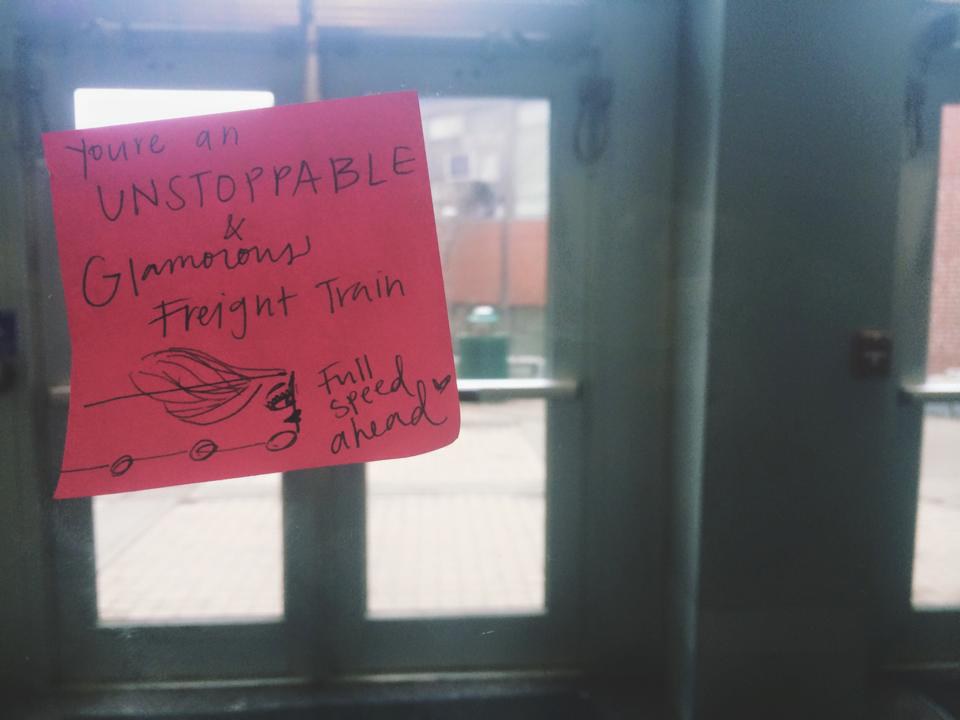 You're an
UNSTOPPABLE
&
Glamorous
Freight Train
Full
speed
ahead